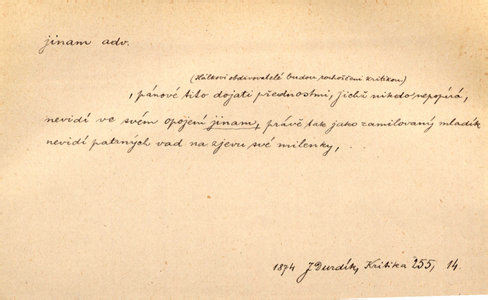 jinam adv.
(Hálkovi obdivovatelé budou rozhořčeni kritikou)
, pánové tito dojati přednostmi, jichž nikdo nepopírá,
nevidí ve svém opojení jinam, právě tak jako zamilovaný mladík
nevidí patrných vad na zjevu své milenky,
1874 J Durdík, Kritika 255, 14.